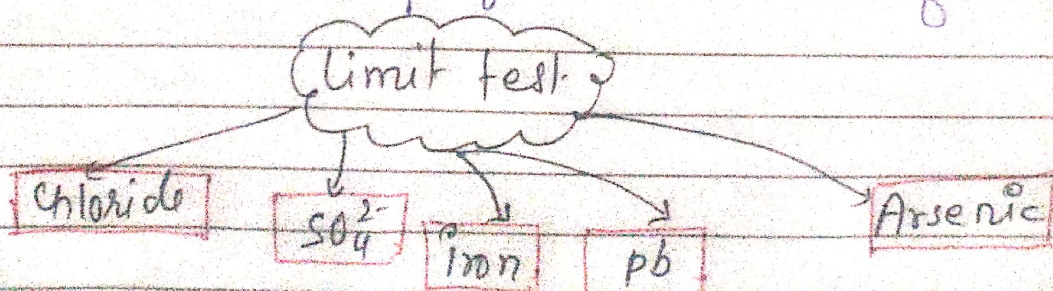 Limit test
Chloride
SO₄²⁻
iron
pb
Arsenic